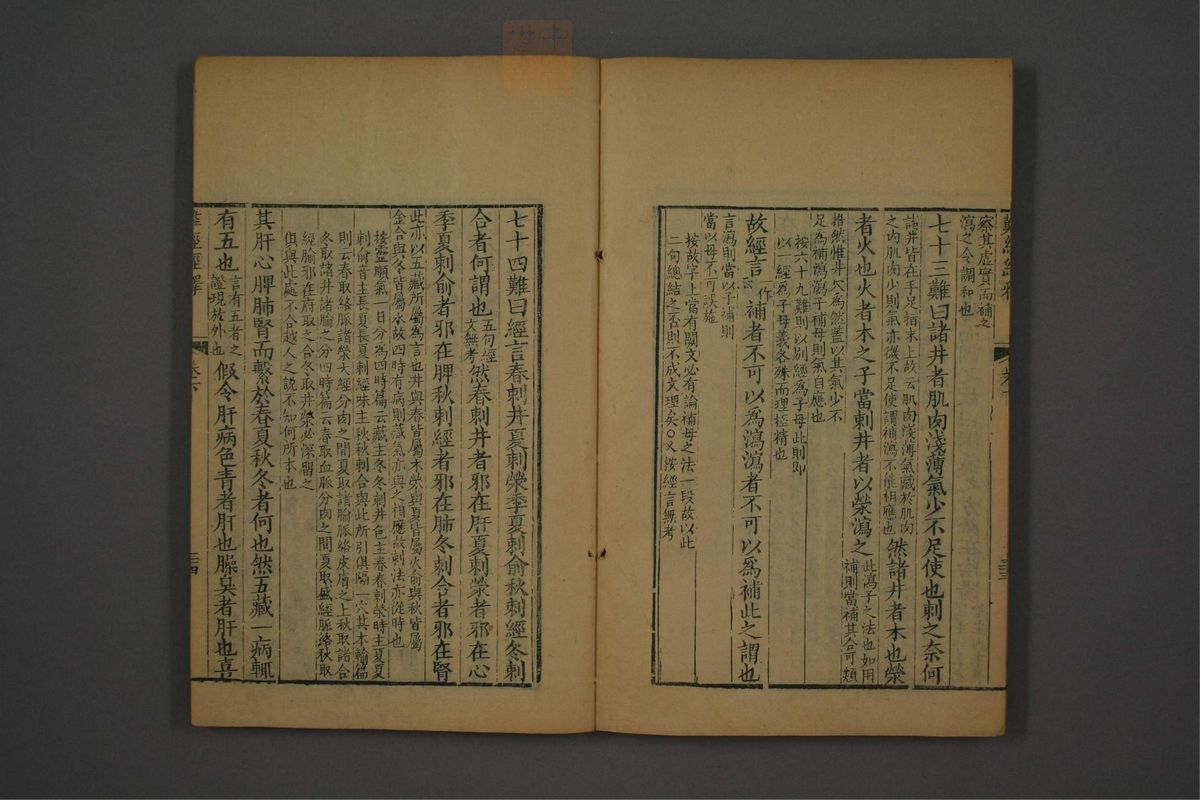 難經經釋
察其虛實而補之
瀉之令調和也
七十三難曰諸井者肌肉淺薄氣少不足使也刺之奈何
諸井皆在手足指末上故云肌肉淺薄氣藏於肌肉
之内肌肉少則氣亦微不足使謂補瀉不能相應也
然諸井者木也滎
者火也火者木之子當刺井者以滎瀉之
此瀉子之法也如用
補則當補其合可類
推然惟井穴爲然蓋以其氣少不
足爲補瀉瀉子補母則氣自應也
按六十九難則以別經爲子母此則即
以一經爲子母義各殊而理極精也
故經言
一作
云
補者不可以爲瀉瀉者不可以爲補此之謂也
言瀉則當以子補則
當以母不可誤施
按故字上當有闕文必有論補母之法一段故以此
二句總結之否則不成文理矣○又按經言無考
七十四難曰經言春刺井夏刺滎季夏刺俞秋刺經冬刺
合者何謂也
五句經
文無考
然春刺井者邪在肝夏刺滎者邪在心
季夏刺俞者邪在脾秋刺經者邪在肺冬刺合者邪在腎
此亦以五藏所屬爲言也井與春皆屬木滎與夏皆屬火俞與秋皆屬
金合與冬皆屬水故四時有病則藏氣亦與之相應故刺法亦從時也
按靈順氣一日分爲四時篇云藏主冬冬刺井色主春春刺滎時主夏夏
刺俞音主長夏長夏刺經味主秋秋刺合與此所引俱隔一穴其本輸篇
則云春取絡脈諸滎大經分肉之間夏取諸腧脈絡皮膚之上秋取諸合
冬取諸井諸腧之分四時篇云春取血脈分肉之間夏取盛經脈絡秋取
經腧邪在府取之合冬取井滎必深留之
俱與此處不合越人之説不知何所本也
其肝心脾肺腎而繫於春夏秋冬者何也然五藏一病輒
有五也
言有五者之
證現於外也
假令肝病色青者肝也臊臭者肝也喜
難經經釋
卷下
三四